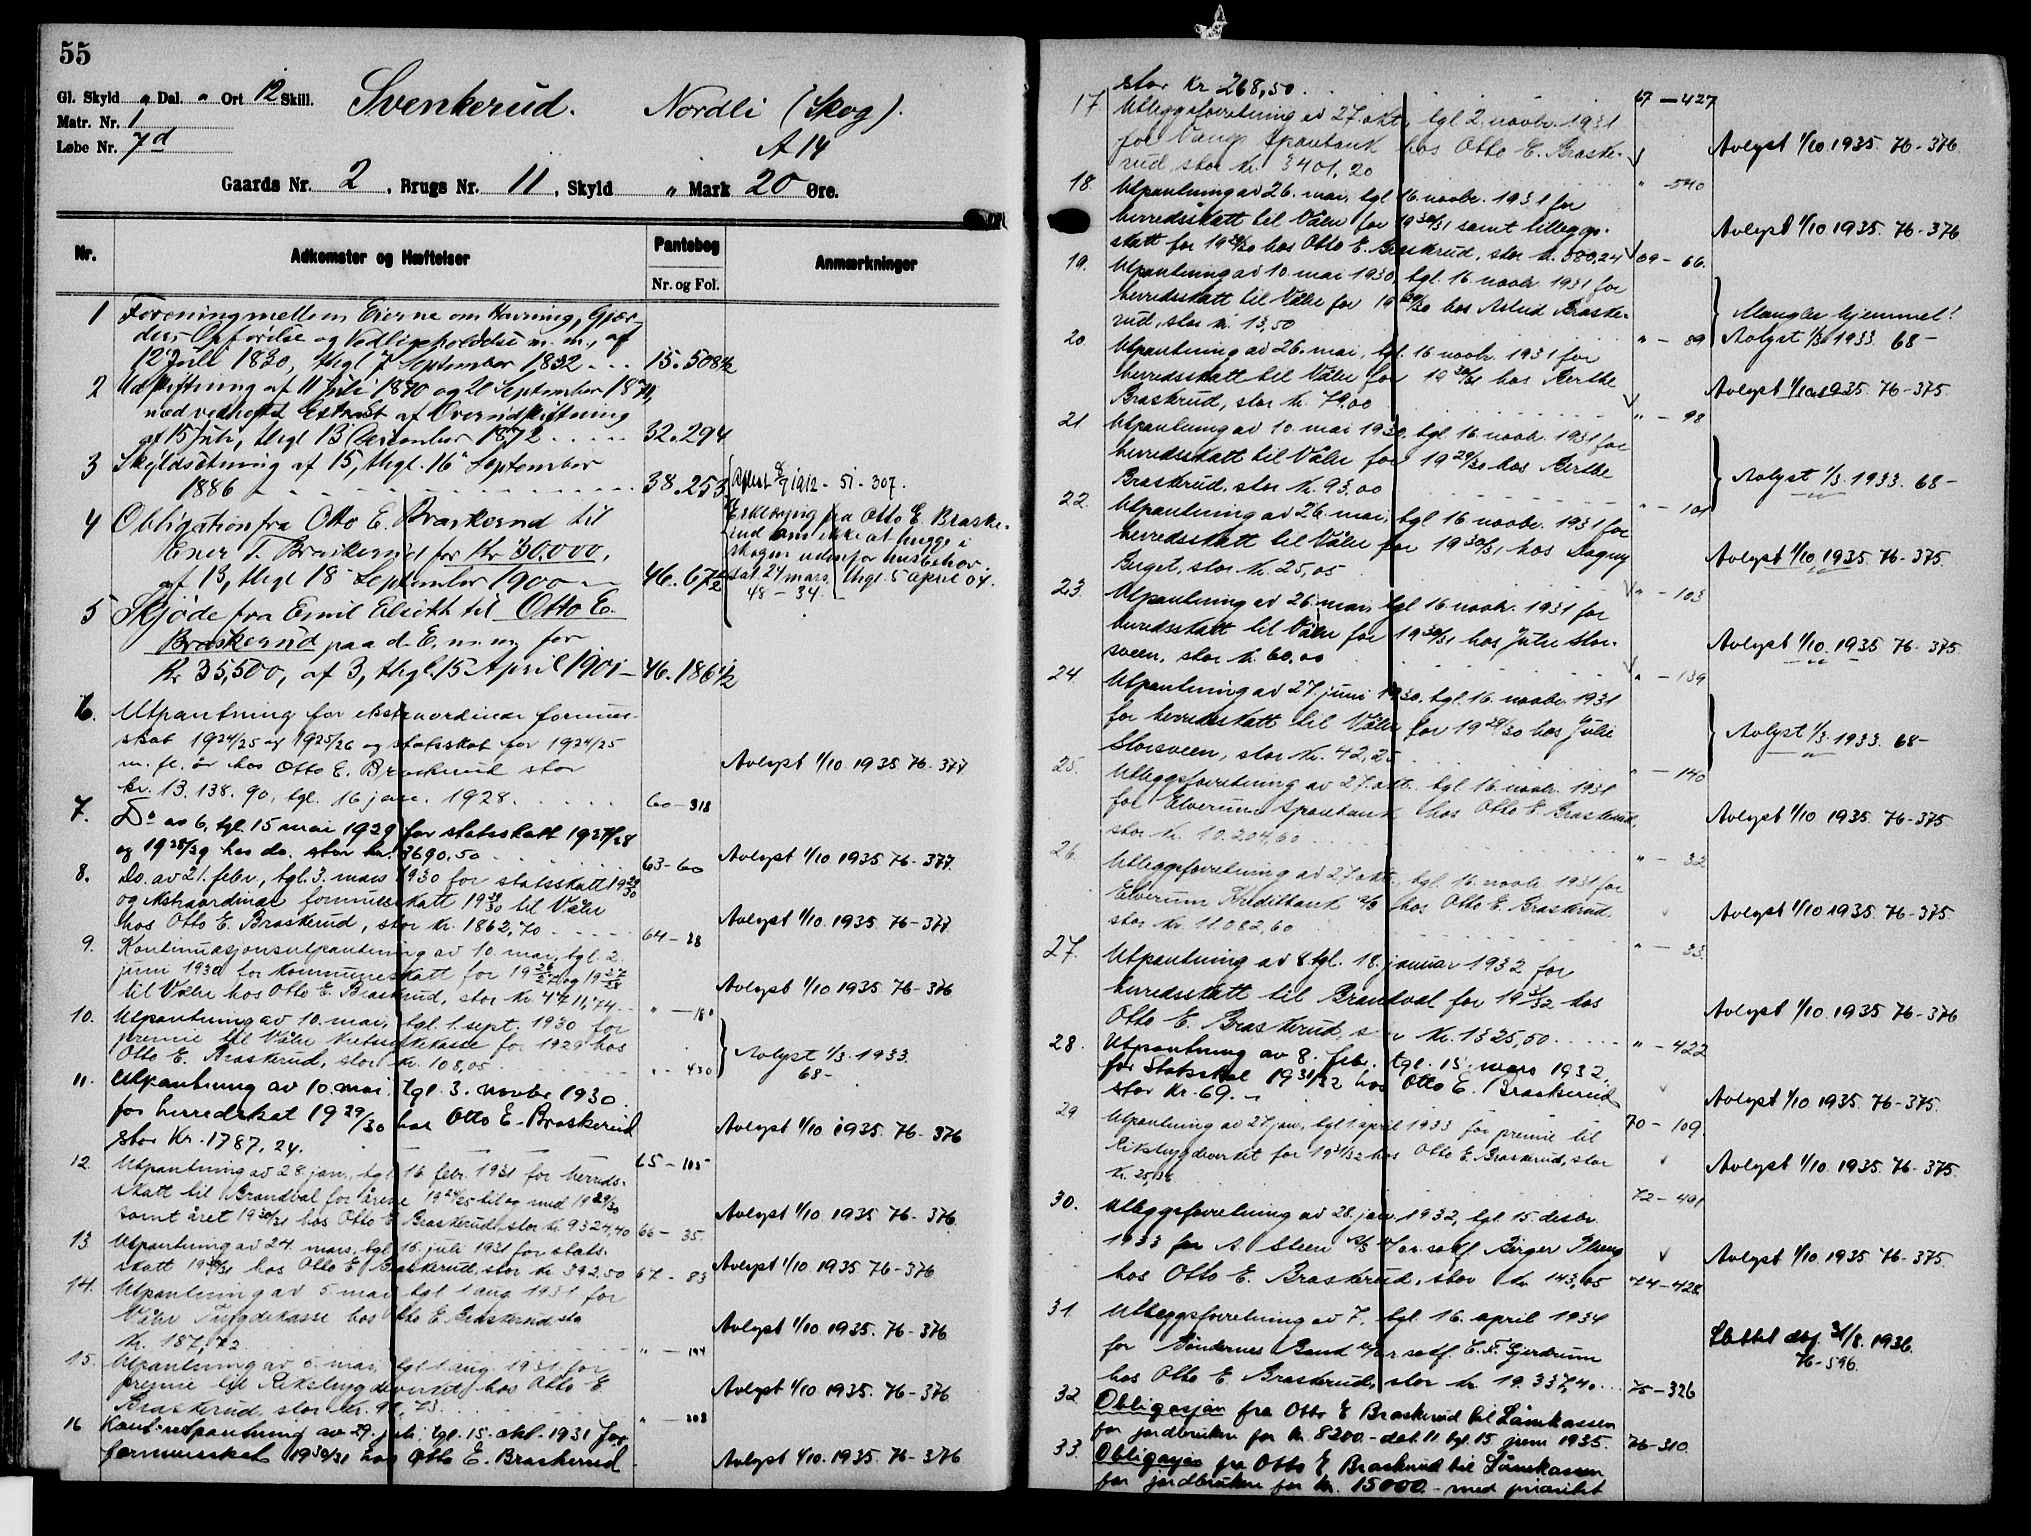 55
Gl. Skyld " Dal. " Ort 12 Skill.
Matr. Nr. 1
Løbe Nr. 7d
Svenkerud. Nordli (Skog).
A 14
Gaards Nr. 2, Brugs Nr. 11, Skyld " Mark 20 Øre.
Nr. Adkomster og Hæftelser Pantebog Nr. og Fol. Anmærkninger
1 Forening mellem Eierne om Havning, Gjær-
ders Opførelse og Vedligeholdelse m. m., af
12 Juli 1830, thgl 7 September 1832 15.508½
2 Udskiftning af 11 Juli 1870 og 21 September 1871,
med vedheftet Extrakt af Overudskiftning
af 15 Juli, thgl 13 December 1872 32.294
3 Skyldsetning af 15, thgl. 16 September
1886 38.253
4 Obligation fra Otto E. Braskerud til
Ener T. Braskerud for Kr 30.000,
af 13, thgl 18 September 1900 46.67½
Aflest 8/7 1912 - 51 - 307.
Erklæring fra Otto E. Braske-
rud om ikke at hugge i
skogen udenfor husbehov.
dat. 24 mars, thgl. 5 april 04.
48 - 34.
5 Skjøde fra Emil Elsikt til Otto E.
Braskerud paa d. E. m. m. for
Kr 35,500, af 3, thgl. 15 April 1901 46.186½
6. Utpantning for ekstraordinær formues-
skat 1924/25 og 1925/26 og statsskat for 1924/25
m. fl. år hos Otto E. Braskerud stor
kr. 13.138.90, tgl. 16 jan. 1928. 60-318
Avlyst 1/10 1935 76-377
7. Do av 6, tgl. 15 mai 1929 for statsskatt 1927/28
og 1928/29 hos do. stor kr. 3690,50 63-60
Avlyst 1/10 1935 76-377.
8. Do. av 21. febr, tgl. 3. mars 1930 for statsskatt 1929/30
og ekstraordinær formuesskatt 1929/30 til Våler
hos Otto E. Braskerud, stor kr. 1862,70 64-28
Avlyst 1/10 1935 76-377
9. Kontinuasjonsutpantning av 10. mai, tgl. 2.
juni 1930 for kommuneskatt for 1926/27 og 1927/28
til Våler hos Otto E. Braskerud, stor kr. 4711,74 " - 180
Avlyst 1/10 1935 76-376
10. Utpantning av 10. mai, tgl. 1. sept. 1930 for
premie til Våler kretssykekasse for 1929 hos
Otto E. Braskerud, stor kr. 108,05 " - 430
Avlyst 1/3. 1933.
68-
11. Utpantning av 10. mai tgl. 3. novbr 1930
for herredskat 1929/30 hos Otto E. Braskerud
stor Kr. 1787,24. 65-105
Avlyst 1/10 1935. 76-376
12. Utpantning av 28. jan., tgl. 16 febr. 1931 for herreds-
skatt til Brandval for årene 1924/25 til og med 1929/30
samt året 1930/31 hos Otto E. Braskerud, stor kr. 9324,40 66-35.
Avlyst 1/10 1935 76-376
13 Utpantning av 24. mars, tgl. 15. juli 1931 for stats-
skatt 1930/31 hos Otto E. Braskerud, stor kr 392,50 67-83
Avlyst 1/10 1935. 76-376
14. Utpantning av 5. mai tgl. 1 aug 1931 for
Våler Trygdekasse hos Otto E. Braskerud sto
kr. 187,72 " - 194
Avlyst 1/10 1935. 76-376
15. Utpantning av 5. mai, tgl 1 aug. 1931 for
premie til Riksbygdeverket hos Otto E
Braskerud, stor kr. 91,73 " - 203
Avlyst 1/10 1935. 76-376
16 Kont.utpantning av 29. juli, tgl. 15. okt. 1931 for
formuesskat 1930/31 hos Otto E. Braskerud
Avlyst 1/10. 1935. 76-376
stor Kr 268,50. 67-427
17. Utleggsforretning av 27. okt. tgl 2. novbr. 1931
for Vang Sparebank hos Otto E. Braske-
rud, stor kr. 3401,20 " - 540
Avlyst 1/10 1935. 76-376
18. Utpantning av 26. mai, tgl 16. novbr. 1931 for
herredsskatt til Våler for 1930/31 samt tilleggs-
skatt for 1929/30 hos Otto E. Braskerud, stor kr. 580,24 69-66.
Avlyst 1/10 1935. 76-376
19. Utpantning av 10. mai 1930, tgl. 16. novbr. 1931 for
herredsskatt til Våler for 1929/30 hos Astrid Braske-
rud, stor kr. 13,50 " - 89
Mangler hjemmel!
Avlyst 1/3 1933. 68-
20. Utpantning av 26. mai, tgl. 16 novbr. 1931 for
herredsskatt til Våler for 1930/31 hos Berthe
Braskerud, stor kr. 79,00 " - 98
Avlyst 1/10 1935. 76-375.
21 Utpantning av 10. mai 1930, tgl. 16 novbr. 1931 for
herredsskatt til Våler for 1929/30 hos Berthe
Braskerud, stor kr. 93,00 " - 101
Avlyst 1/3. 1933. 68-
22. Utpantning av 26. mai, tgl 16 novbr. 1931 for
herredsskatt til Våler for 1930/31 hos Dagny
Berget, stor kr. 25,05 " - 103
Avlyst 1/10 1935. 76-375.
23. Utpantning av 26. mai, tgl 16 novbr. 1931 for
herredsskatt til Våler for 1930/31 hos Julie Stor-
sveen, stor kr. 60,00 " - 139
Avlyst 1/10. 1935. 76-375.
24. Utpantning av 27. juni 1930, tgl. 16. novbr. 1931
for herredsskatt til Våler for 1929/30 hos Julie
Storsveen, stor kr. 42,25 " - 140
Avlyst 1/3. 1933. 68-
25. Utleggsforretning av 27. okt. tgl 16. novbr. 1931
for Elverum Sparebank hos Otto E. Braskerud,
stor kr. 10.204,60 " - 32
Avlyst 1/10 1935. 76-375.
26. Utleggsforretning av 27. okt. tgl. 16. novbr. 1931 for
Elverum Kreditbank a/s hos Otto E. Braskerud.
stor kr. 11.082,60 " - 33.
Avlyst 1/10 1935. 76-375.
27. Utpantning av 8 tgl. 18. januar 1932 for
herredsskatt til Brandval for 1931/32 hos
Otto E. Braskerud, stor kr. 1325,50 " - 422
Avlyst 1/10 1935. 76-376
28. Utpantning av 8. febr. tgl. 15. mars 1932.
for Statsskat 1931/32 hos Otto E. Braskerud
stor Kr. 69.- 70-109.
Avlyst 1/10 1935. 76-375.
29 Utpantning av 27 jan. tgl 1. april 1933 for premie til
Riksbygdeverket for 1931/32 hos Otto E. Braskerud, stor
kr. 25,36 72-491
Avlyst 1/10. 1935. 76-375.
30. Utleggsforretning av 28. jan. 1932, tgl. 15. desbr.
1933 for A. Steen a/s v/or.sakf. Birger
hos Otto E. Braskerud, stor kr 143,05 74-428
Avlyst 1/10 1935 76-375.
31 Utleggsforretning av 7. tgl. 16. april 1934
for Søndernes Sand v/o.r.sakf. E. F. Gjerdrum
hos Otto E. Braskerud, stor kr 19.337,40 75-326
Slettet dbf. 31/8. 1936.
76-596.
32. Obligasjon fra Otto E Braskerud til Lånekassen
for jordbrukere for kr. 8200.- dat. 11 tgl. 15 juni 1935. 76-310.
33. Obligasjon fra Otto E Braskerud til Lånekassen
for jordbrukere for kr. 15000.- med prioritet